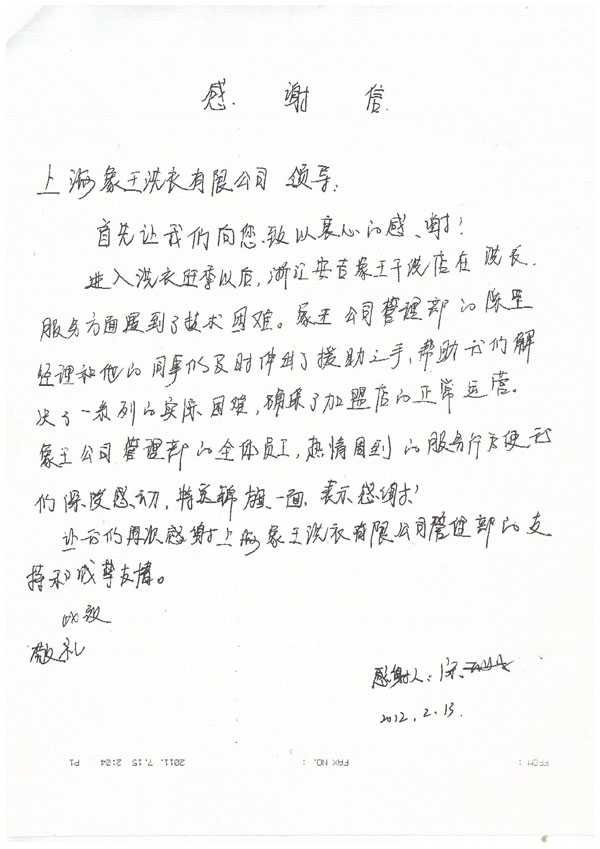 感 谢 信
上海象王洗衣有限公司 领导:
首先让我们向您致以衷心的感谢!
进入洗衣旺季以后,浙江安吉象王干洗店在 洗衣
服务方面遇到了技术困难。象王公司管理部的陈
经理和他的同事们及时伸出了援助之手,帮助我们解
决了一系列的实际困难,确保了加盟店的正常运营。
象王公司管理部的全体员工,热情周到的服务行为使我
们深受感动,特送锦旗一面,表示感谢!
让我们再次感谢上海象王洗衣有限公司管理部的支
持和诚挚友情。
此致
敬礼
感谢人:
2012.2.13.
FROM : FAX NO. : 2011. 7.15 2:04 P1